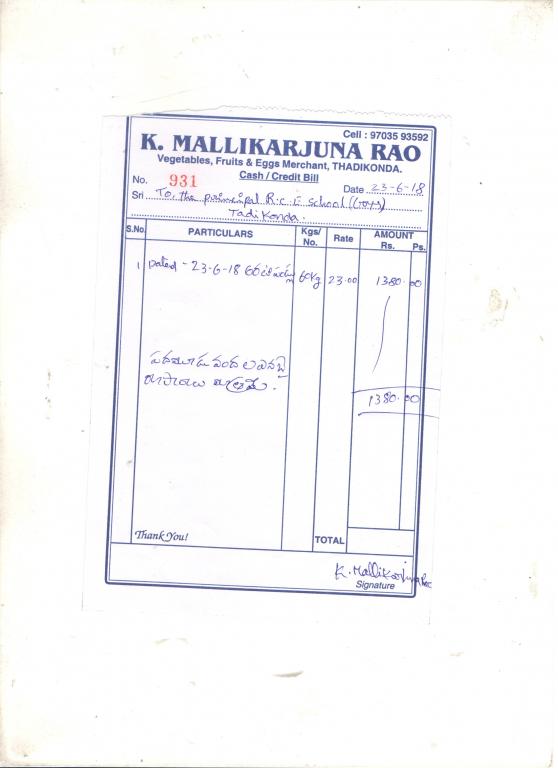 Cell : 97035 93592
K. MALLIKARJUNA RAO
Vegetables, Fruits & Eggs Merchant, THADIKONDA.
Cash / Credit Bill
No. 931 Date 23-6-18
Sri To, the principal R.C.E School (Boys)
Tadikonda.
S.No. PARTICULARS Kgs/ No. Rate AMOUNT Rs. Ps.
1 Dated - 23-6-18 60 Kg 23.00 1380.00
1380.00
Thank You! TOTAL
K. Mallikarjuna Rao
Signature